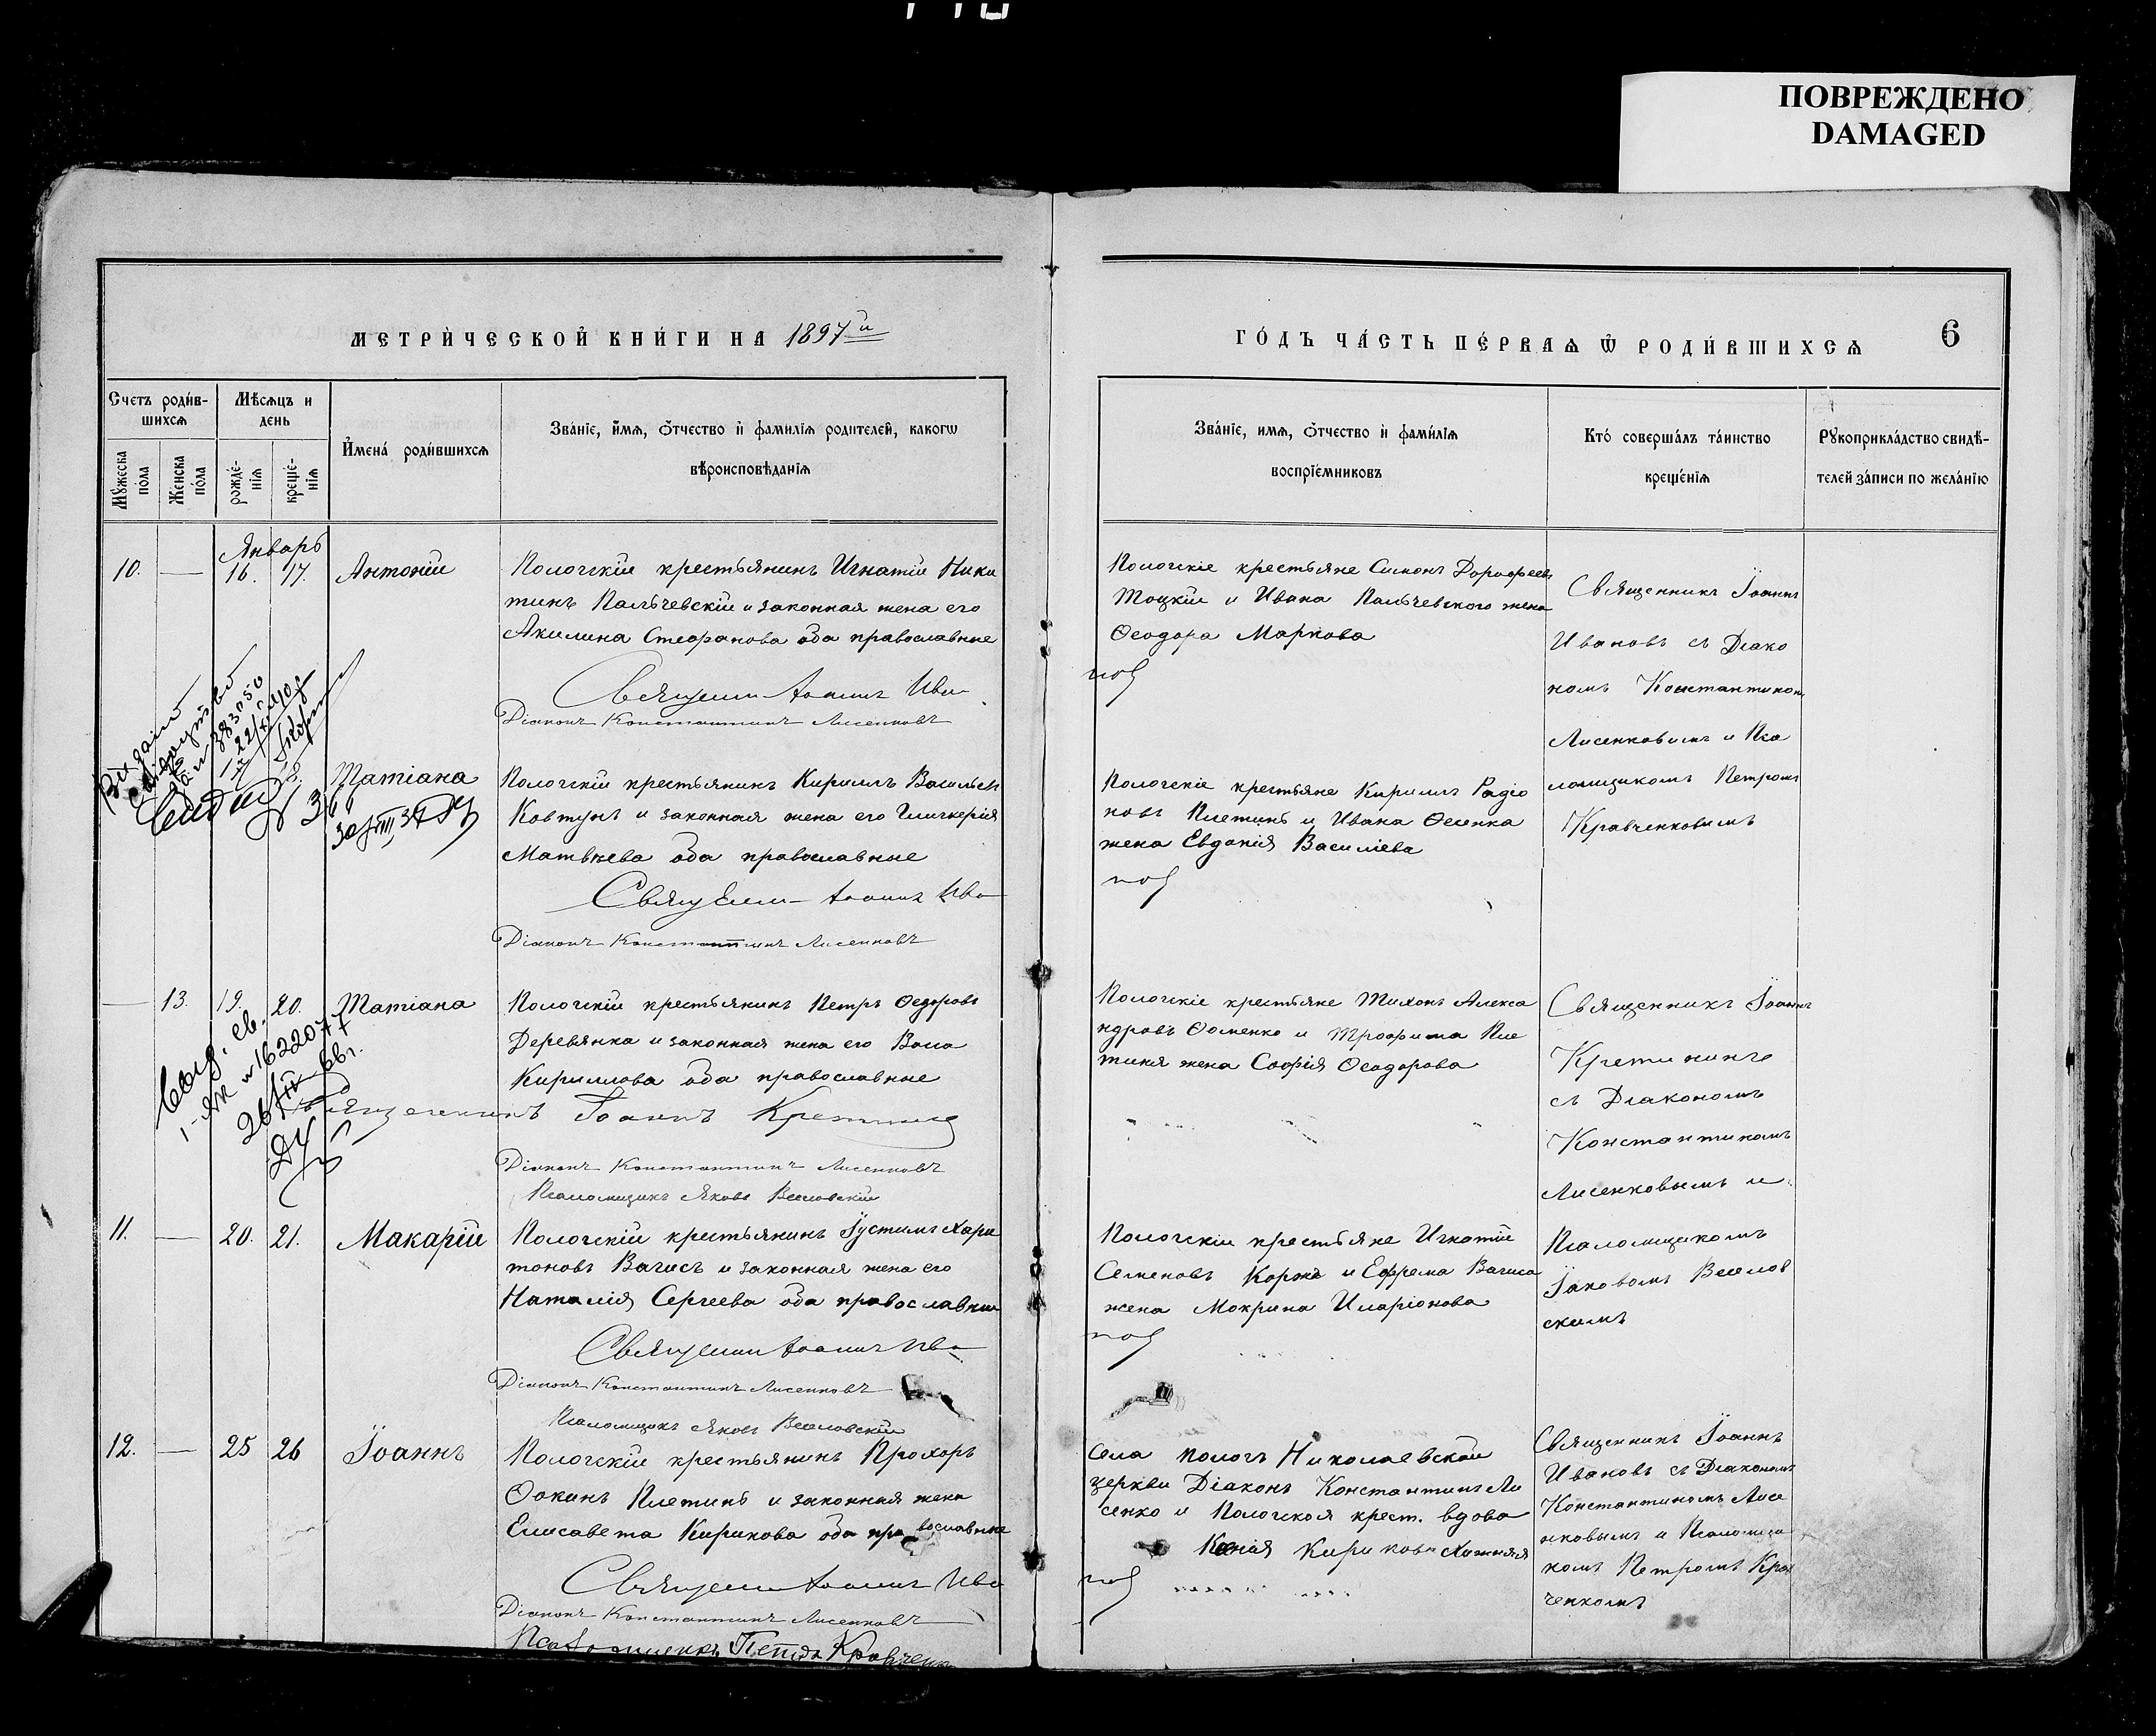 ПОВРЕЖДЕНО
DAMAGED
МЕТРИ́ЧЕСКОЙ КНИ́ГИ НА 1897й
ГО́ДЪ ЧА́СТЬ ПЕ́РВАѦ Ѿ РОДИ́ВШИХСѦ
6
Счетъ роди́в-
шихсѧ
Мѣсѧцъ и
день
Мꙋ́жеска
по́ла
Же́нска
по́ла
рожде́-
нїѧ
креще́-
нїѧ
И҆мена̀ роди́вшихсѧ
Зва́нїе, и҆́мѧ, ѻ҆́тчество и҆ фами́лїѧ роди́телей, какогѡ
вѣроисповѣ́данїѧ
Зва́нїе, имѧ, ѻ҆́тчество и҆ фами́лїѧ
воспрїе́мниковъ
Кто̀ соверша́лъ та́инство
креще́нїѧ
Рꙋкоприкла́дство свидѣ́-
телей за́писи по жела́нїю
Январь
10. — 16. 17. Антоній
Пологскій крестьянинъ Игнатій Ники
тинъ Пальчевскій и законная жена его
Акилина Стефанова оба православные
Священн Іоаннъ Ива
Діаконъ Константинъ Лисенковъ
Пологскіе крестьяне Симонъ Дорофеевъ
Тоцкій и Ивана Пальчевского жена
Ѳеодора Маркова
Священникъ Іоаннъ
Ивановъ съ Діако
номъ Константином
Лисенковымъ и Пса
ломщикомъ Петромъ
Кравченковымъ
Татіана
Пологскій крестьянинъ Кириллъ Васильевъ
Ковтунъ и законная жена его Гликерія
Матвѣева оба православные
Священн Іоаннъ Ива
Діаконъ Константинъ Лисенковъ
Пологскіе крестьяне Кириллъ Радіо
новъ Плетинь и Ивана Ѳесенка
жена Евдокія Василіева
— 13. 19. 20. Татіана
Пологскій крестьянинъ Петръ Ѳедоровъ
Деревянка и законная жена его Васса
Кириллова оба православные
Священникъ Іоаннъ Кретинин
Діаконъ Константинъ Лисенковъ
Псаломщикъ Яковъ Веселовскій
Пологскіе крестьяне Тихонъ Алекса
ндровъ Ѳоменко и Трофима Пле
тиня жена Софія Ѳеодорова
Священникъ Іоаннъ
Кретининъ
съ Діакономъ
Константиномъ
Лисенковымъ и
Псаломщикомъ
Іаковомъ Веселов
скимъ
11. — 20. 21. Макарій
Пологскій крестьянинъ Іустинъ Хари
тоновъ Вагисъ и законная жена его
Наталія Сергеева оба православные
Священн Іоаннъ Ива
Діаконъ Константинъ Лисенковъ
Псаломщикъ Яковъ Веселовскій
Пологскіи крестьяне Игнатій
Семеновъ Коржъ и Ефрема Вагиса
жена Мокрина Иларіонова
12. — 25 26 Іоаннъ
Пологскій крестьянинъ Прохоръ
Ѳокинъ Плетинь и законная жена
Елисавета Кирикова оба православные
Священн Іоаннъ Ива
Діаконъ Константинъ Лисенковъ
Псаломщикъ Петръ Кравченк
Села Пологъ Николаевской
церкви Діаконъ Константинъ Ли
сенко и Пологская крест. вдова
Ксенія Кирикова
Священникъ Іоаннъ
Ивановъ съ Діакономъ
Константиномъ Лисе
нковымъ и Псаломщи
комъ Петромъ Крав
ченкомъ